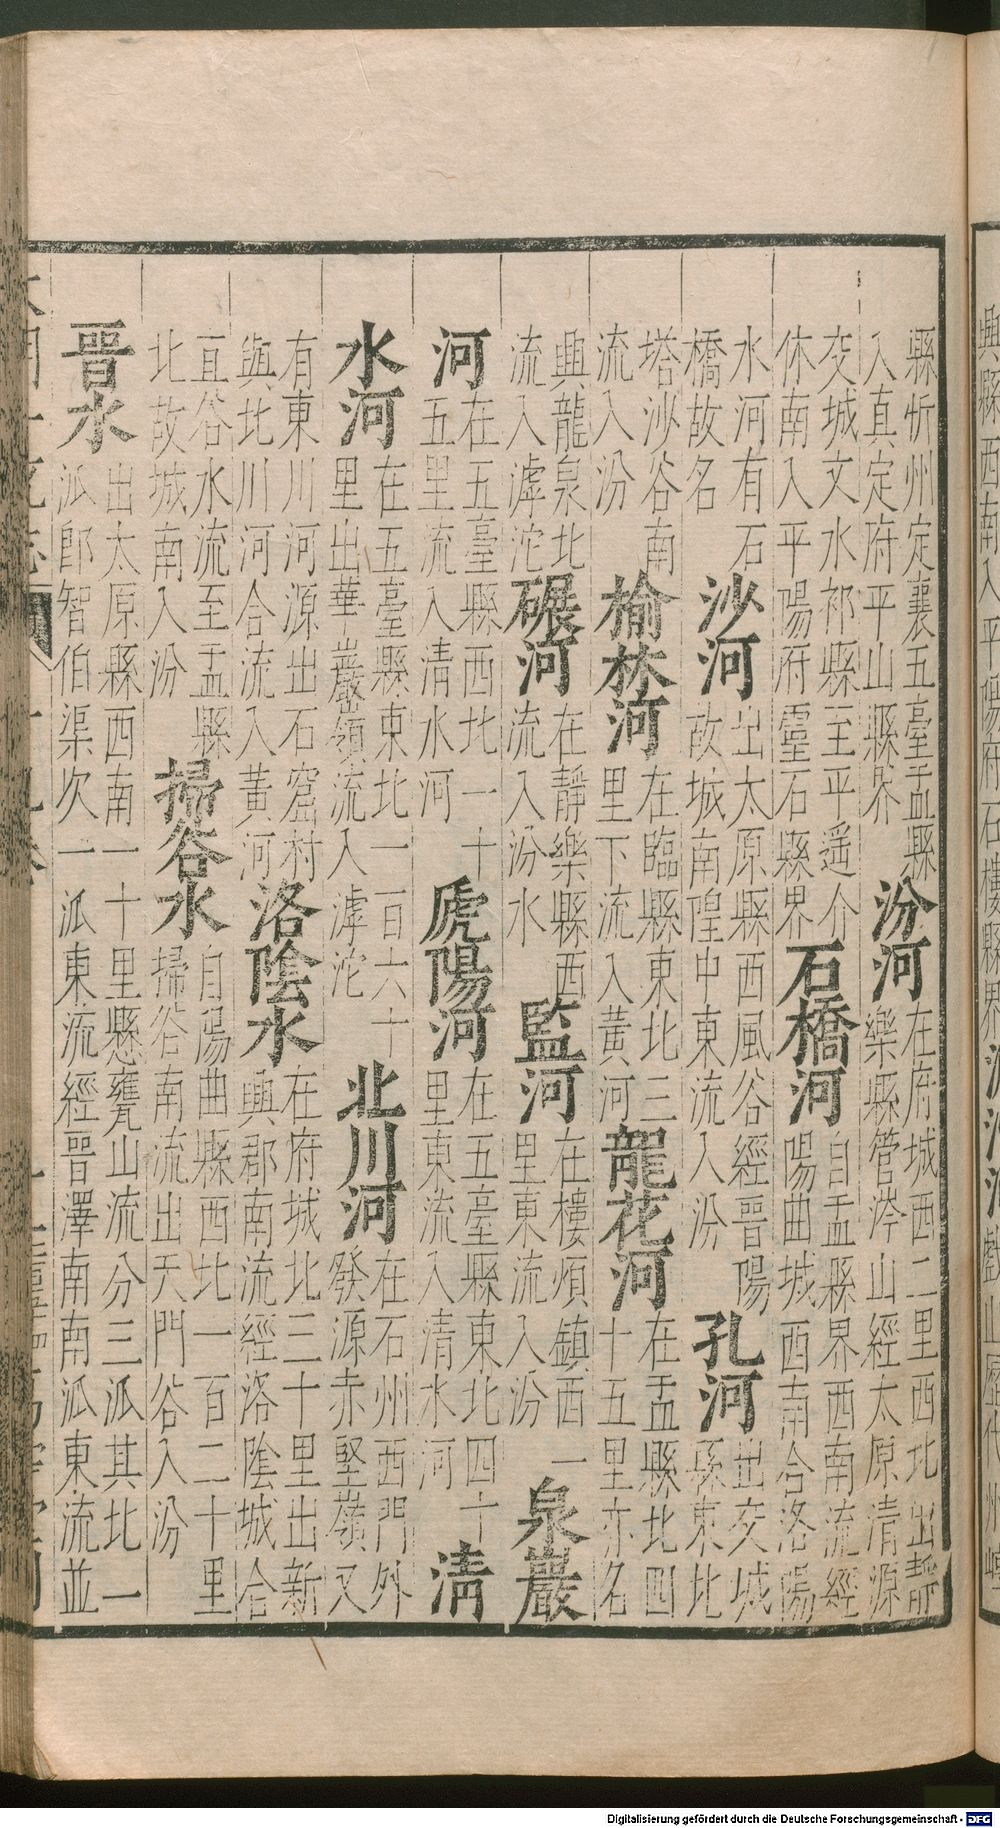 縣忻州定襄五臺盂縣
入真定府平山縣界
汾河
在府城西二里西北出靜
樂縣管涔山經太原清源
交城文水祁縣至平遥介
休南入平陽府靈石縣界
石橋河
自盂縣界西南流經
陽曲城西南合洛陽
水河有石
橋故名
沙河
出太原縣西風谷經晉陽
故城南隍中東流入汾
孔河
出交城
縣東北
塔沙谷南
流入汾
榆林河
在臨縣東北三
里下流入黃河
龍花河
在盂縣北四
十五里亦名
興龍泉北
流入滹沱
碾河
在靜樂縣西
流入汾水
監河
在樓煩鎮西一
里東流入汾
泉巖
河
在五臺縣西北一十
五里流入清水河
虒陽河
在五臺縣東北四十
里東流入清水河
清
水河
在五臺縣東北一百六十
里出華巖嶺流入滹沱
北川河
在石州西門外
發源赤堅嶺又
有東川河源出石窟村
與北川河合流入黃河
洛陰水
在府城北三十里出新
興郡南流經洛陰城合
直谷水流至盂縣
北故城南入汾
掃谷水
自陽曲縣西北一百二十里
掃谷南流出天門谷入汾
晉水
出太原縣西南一十里懸甕山流分三派其北一
派卽智伯渠次一派東流經晉澤南南派東流並
Digitalisierung gefördert durch die Deutsche Forschungsgemeinschaft - DFG